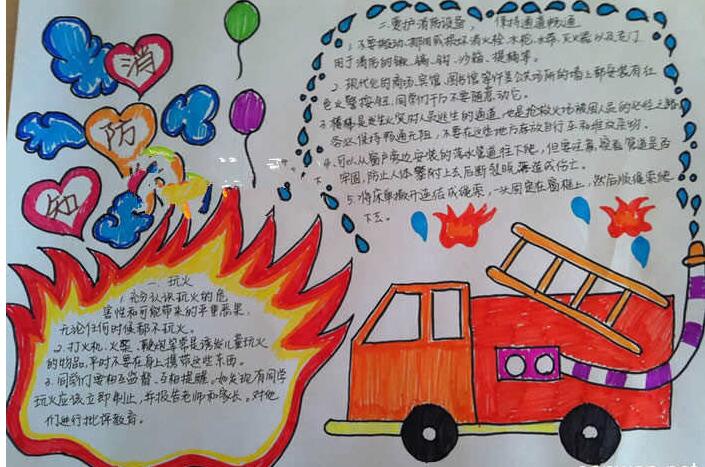 消
防
知
二.爱护消防设备， 保持通道畅通
1.不要挪动、挪用或损坏消火栓、水枪、水带、灭火器以及专门
用于消防的锹、镐、钩、沙箱、提桶等。
2.现代化的商场、宾馆、图书馆等许多公共场所的墙上都安装有红
色火警按钮，同学们千万不要随意动它。
3.楼梯是发生火灾时人员逃生的通道，也是抢救火场被困人员的必经之路
务必保持畅通无阻，不要在这些地方存放自行车和堆放杂物。
4.可以从窗户旁边安装的落水管道往下爬，但要注意，察看管道是否
牢固，防止人体攀附上去后断裂脱落造成伤亡。
5.将床单撕开连结成绳索，一头固定在窗框上，然后顺绳索爬
下去。
一.玩火
1.充分认识玩火的危
害性和可能带来的严重恶果，
无论任何时候都不玩火。
2.打火机、火柴、鞭炮等常是诱发儿童玩火
的物品，平时不要在身上携带这些东西。
3.同学们要相互监督，互相提醒，如发现有同学
玩火应该立即制止，并报告老师和家长。对他
们进行批评教育。